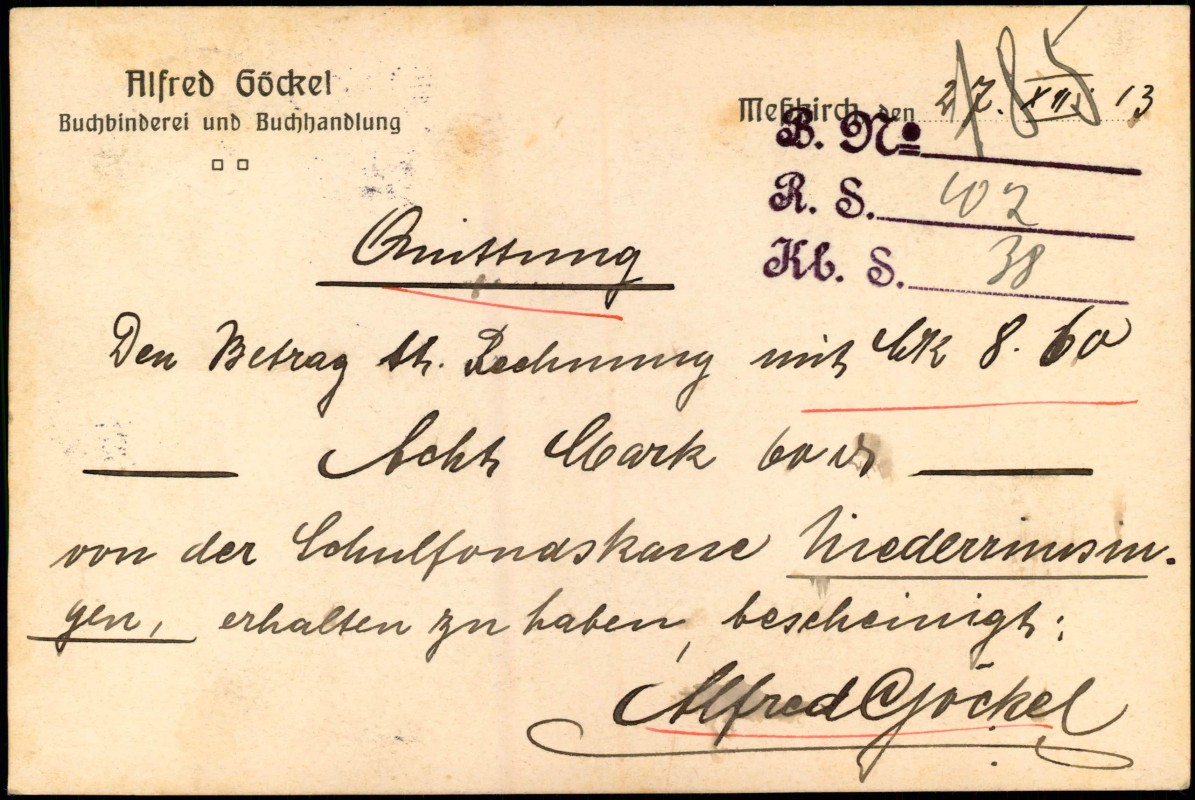 Alfred Göckel
Buchbinderei und Buchhandlung
Meßkirch, den 27. XII. 13
B. No 185
R. S. 402
Kb. S. 38
Quittung
Den Betrag lt. Rechnung mit Mk 8.60
Acht Mark 60 d
von der Schulfondskasse Niederrimsin-
gen, erhalten zu haben, bescheinigt:
Alfred Göckel